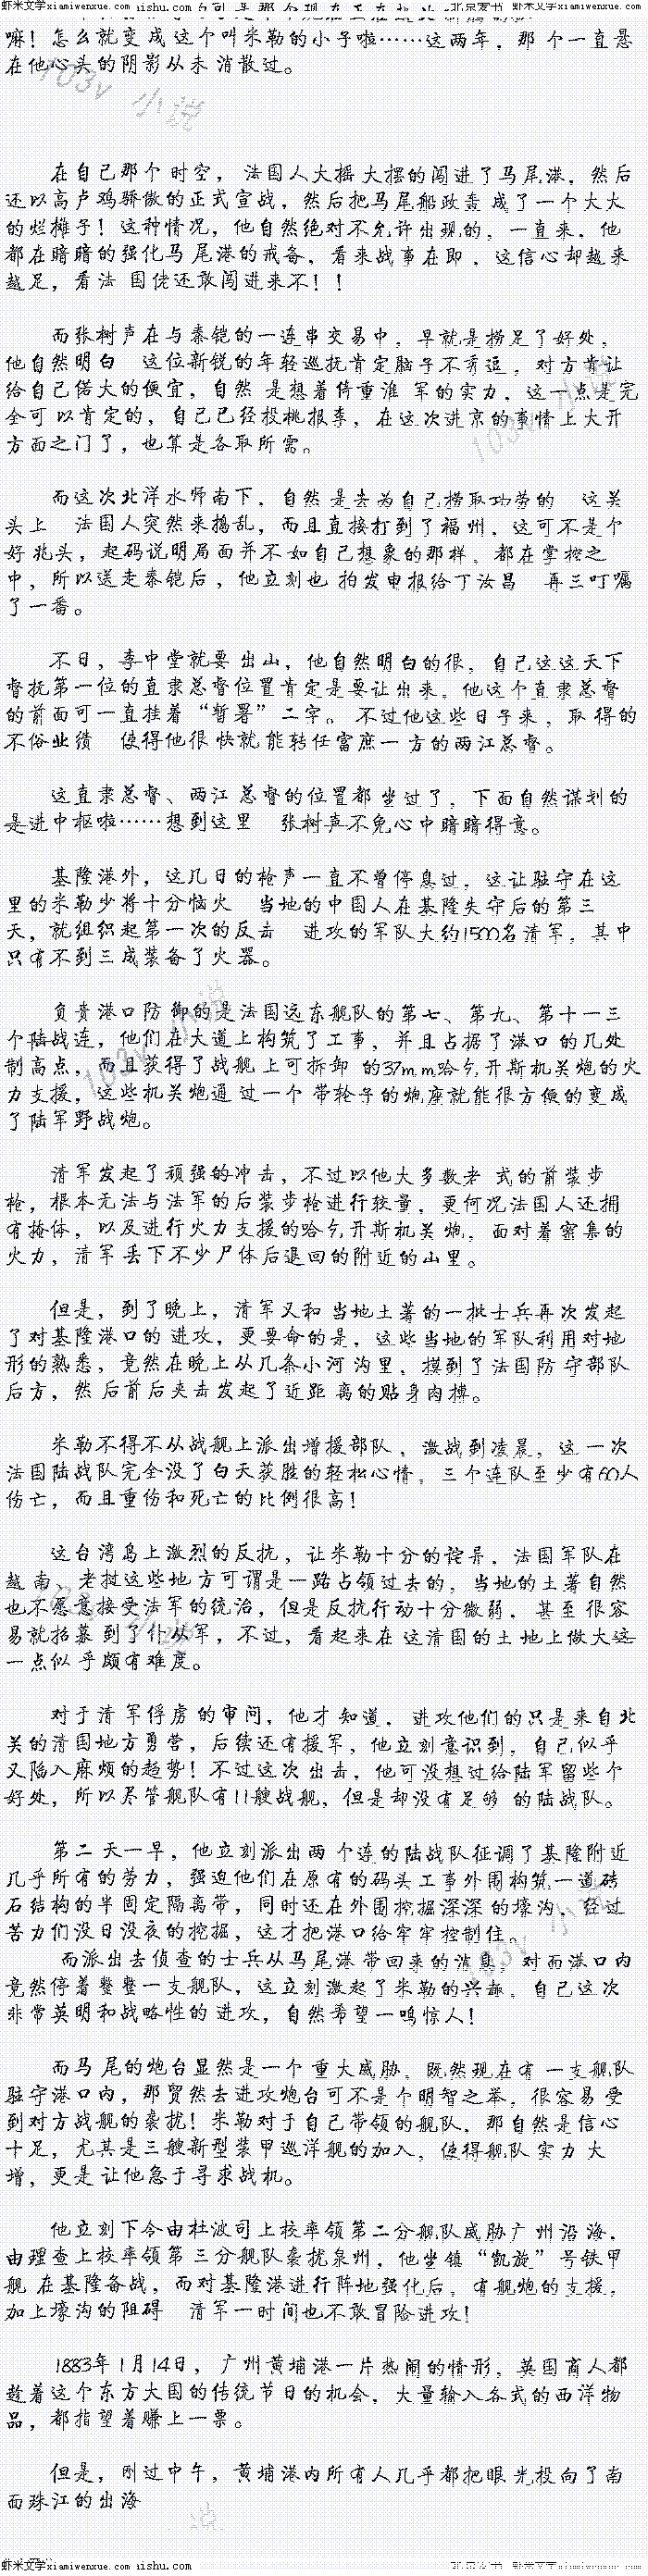 虾米文学xiamiwenxue.com
虾米文学xiamiwenxue.com
嘛！怎么就变成这个叫米勒的小子啦……这两年，那个一直悬
在他心头的阴影从未消散过。
103v 小说
在自己那个时空，法国人大摇大摆的闯进了马尾港，然后
还以高卢鸡骄傲的正式宣战，然后把马尾船政轰成了一个大大
的烂摊子！这种情况，他自然绝对不允许出现的，一直来，他
都在暗暗的强化马尾港的戒备，看来战事在即，这信心却越来
越足，看法国佬还敢闯进来不！！
而张树声在与秦铠的一连串交易中，早就是捞足了好处，
他自然明白 这位新锐的年轻巡抚肯定脑子不秀逗，对方肯让
给自己偌大的便宜，自然是想着倚重淮军的实力，这一点是完
全可以肯定的，自己已经投桃报李，在这次进京的事情上大开
方面之门了，也算是各取所需。
103v 小说
而这次北洋水师南下，自然是去为自己捞取功劳的 这关
头上 法国人突然来捣乱，而且直接打到了福州，这可不是个
好兆头，起码说明局面并不如自己想象的那样，都在掌控之
中，所以送走秦铠后，他立刻也拍发电报给丁汝昌 再三叮嘱
了一番。
不日，李中堂就要出山，他自然明白的很，自己这这天下
督抚第一位的直隶总督位置肯定是要让出来，他这个直隶总督
的前面可一直挂着“暂署”二字。不过他这些日子来，取得的
不俗业绩 使得他很快就能转任富庶一方的两江总督。
这直隶总督、两江总督的位置都坐过了，下面自然谋划的
是进中枢啦……想到这里 张树声不免心中暗暗得意。
基隆港外，这几日的枪声一直不曾停息过，这让驻守在这
里的米勒少将十分恼火 当地的中国人在基隆失守后的第三
天，就组织起第一次的反击 进攻的军队大约1500名清军，其中
只有不到三成装备了火器。
负责港口防御的是法国远东舰队的第七、第九、第十一三
个陆战连，他们在大道上构筑了工事，并且占据了港口的几处
制高点，而且获得了战舰上可拆卸的37mm哈乞开斯机关炮的火
力支援，这些机关炮通过一个带轮子的炮座就能很方便的变成
了陆军野战炮。
103v 小说
清军发起了顽强的冲击，不过以他大多数老式的前装步
枪，根本无法与法军的后装步枪进行较量，更何况法国人还拥
有掩体，以及进行火力支援的哈乞开斯机关炮，面对着密集的
火力，清军丢下不少尸体后退回的附近的山里。
但是，到了晚上，清军又和当地土著的一批士兵再次发起
了对基隆港口的进攻，更要命的是，这些当地的军队利用对地
形的熟悉，竟然在晚上从几条小河沟里，摸到了法国防守部队
后方，然后前后夹击发起了近距离的贴身肉搏。
米勒不得不从战舰上派出增援部队，激战到凌晨，这一次
法国陆战队完全没了白天获胜的轻松心情，三个连队至少有60人
伤亡，而且重伤和死亡的比例很高！
这台湾岛上激烈的反抗，让米勒十分的诧异，法国军队在
越南、老挝这些地方可谓是一路占领过去的，当地的土著自然
也不愿意接受法军的统治，但是反抗行动十分微弱，甚至很容
易就招募到了仆从军，不过，看起来在这清国的土地上做大这
一点似乎颇有难度。
对于清军俘虏的审问，他才知道，进攻他们的只是来自北
关的清国地方勇营，后续还有援军，他立刻意识到，自己似乎
又陷入麻烦的趋势！不过这次出击，他可没想过给陆军留些个
好处，所以尽管舰队有11艘战舰，但是却没有足够的陆战队。
第二天一早，他立刻派出两个连的陆战队征调了基隆附近
几乎所有的劳力，强迫他们在原有的码头工事外围构筑一道砖
石结构的半固定隔离带，同时还在外围挖掘深深的壕沟，经过
苦力们没日没夜的挖掘，这才把港口给牢牢控制住。
而派出去侦查的士兵从马尾港带回来的消息，对面港口内
竟然停着整整一支舰队，这立刻激起了米勒的兴趣，自己这次
非常英明和战略性的进攻，自然希望一鸣惊人！
103v 小说
而马尾的炮台显然是一个重大威胁，既然现在有一支舰队
驻守港口内，那贸然去进攻炮台可不是个明智之举，很容易受
到对方战舰的袭扰！米勒对于自己带领的舰队，那自然是信心
十足，尤其是三艘新型装甲巡洋舰的加入，使得舰队实力大
增，更是让他急于寻求战机。
他立刻下令由杜波司上校率领第二分舰队威胁广州沿海，
由理查上校率领第三分舰队袭扰泉州，他坐镇“凯旋”号铁甲
舰在基隆备战，而对基隆港进行阵地强化后，有舰炮的支援，
加上壕沟的阻碍 清军一时间也不敢冒险进攻！
1883年1月14日，广州黄埔港一片热闹的情形，英国商人都
趁着这个东方大国的传统节日的机会，大量输入各式的西洋物
品，都指望着赚上一票。
但是，刚过中午，黄埔港内所有人几乎都把眼光投向了南
面珠江的出海
虾米文学xiamiwenxue.com aishu.com
虾米文学xiamiwenxue.com